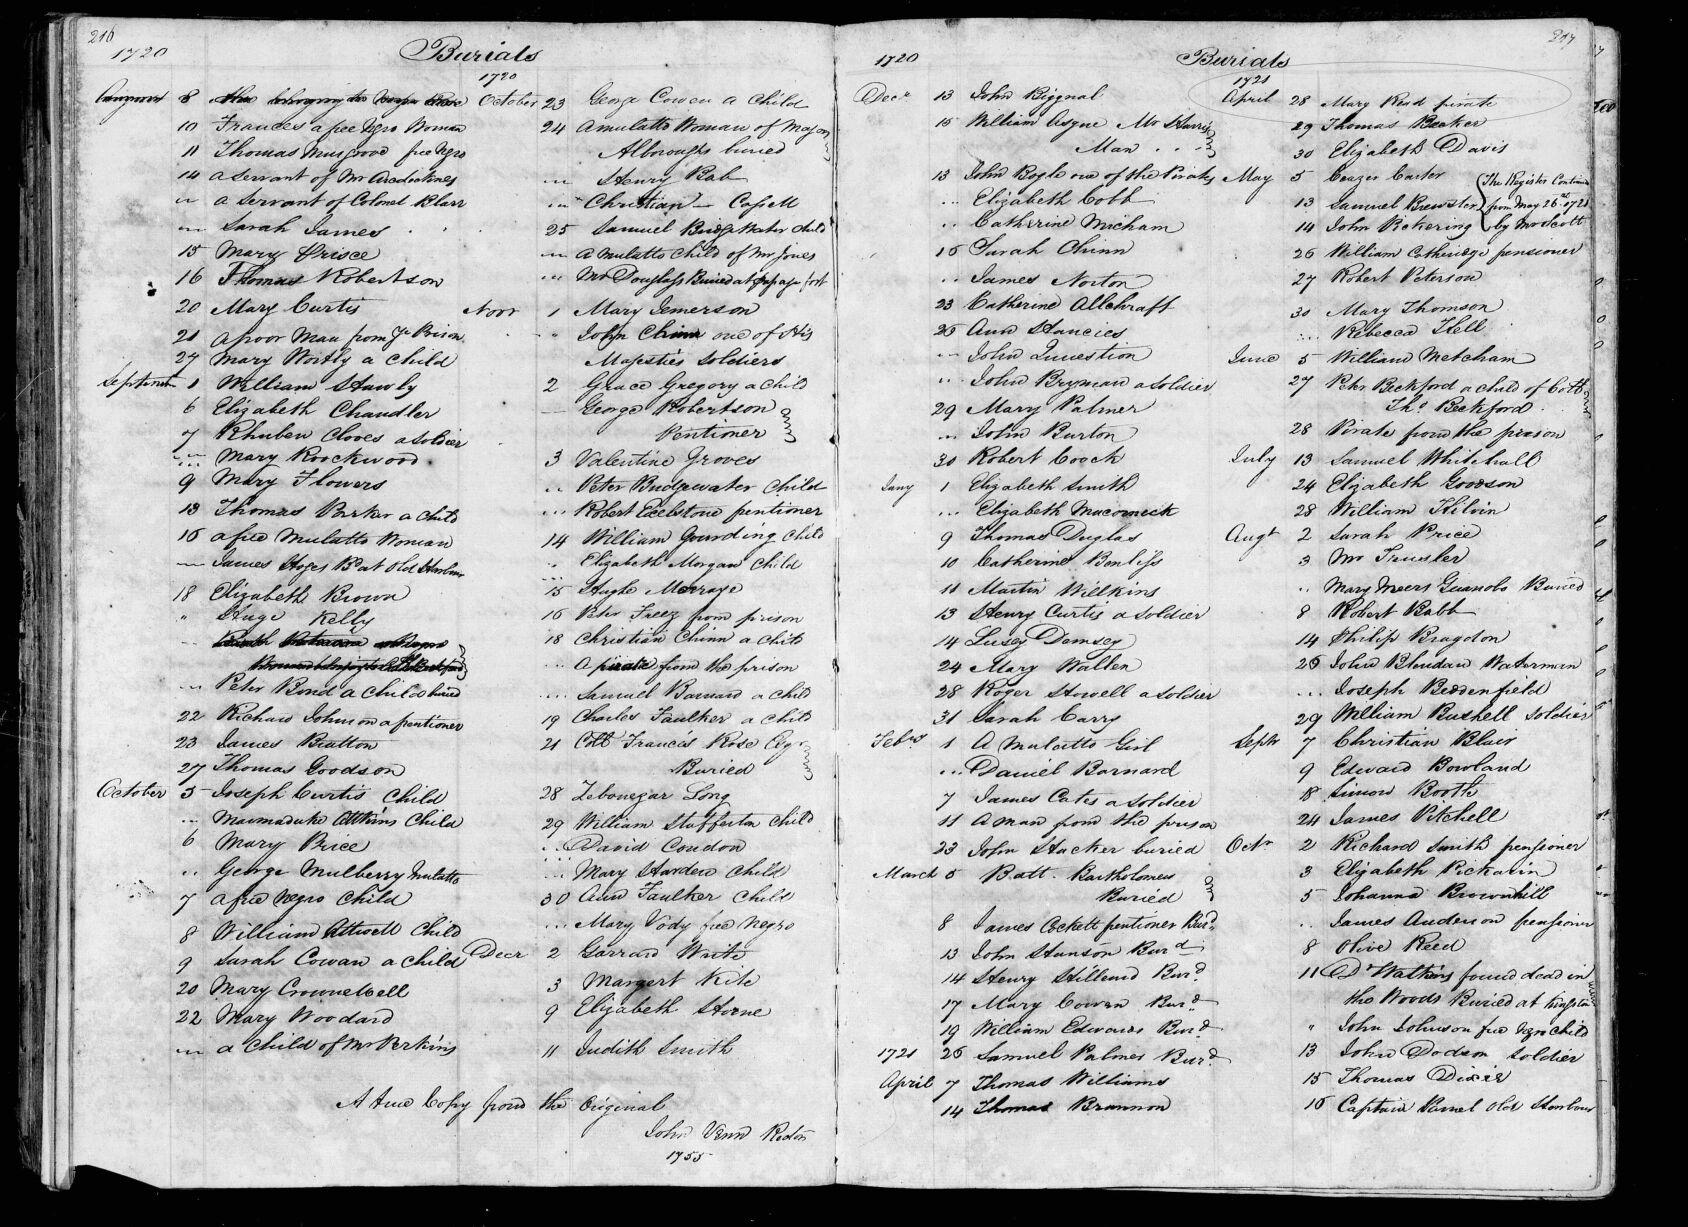 216
1720
Burials
August 8
10 Frances a free Negro Woman
11 Thomas Musgrove free Negro
14 a servant of Mr
" a servant of Colonel
" Sarah James
15 Mary Prisce
16 Thomas Robertson
20 Mary Curtis
21 a poor Man from ye Prison
27 Mary Wortly a Child
1 William Stawly
6 Elizabeth Chandler
7 Rhuben Cloves a soldier
" Mary Rookwood
9 Mary Flowers
13 Thomas Parker a Child
16 a free Mulatto Woman
" James B at Old Harbour
18 Elizabeth Brown
" Huge Kelly
" Peter Bond a Child buried
22 Richard Johnson a pentioner
23 James Bratton
27 Thomas Goodson
October 5 Joseph Curtis Child
" Marmaduke Attkins Child
6 Mary Price
" George Mulberry Mulatto
7 a free Negro Child
8 William Attwell Child
9 Sarah Cowan a Child
20 Mary Crownewell
22 Mary Woodard
" a Child of Mr Perkins
1720
October 23 George Cowen a Child
24 a mulatto Woman of Major
Alboroughs buried
" Henry Bab
" Christian Cassell
25 Samuel Bridgewater Child
" a Mulatto Child of Mr Jones
" Mr Douglass Buried at fort
Novr 1 Mary Jemerson
" John Chinn one of His
Majesties Soldiers
2 Grace Gregory a Child
George Robertson
Pentioner
3 Valentine Groves
" Peter Bridgewater Child
" Robert Eccelstone pentioner
14 William Gourding Child
" Elizabeth Morgan Child
15 Hughe Morraye
16 Peter from prison
18 Christian Chinn a Child
" a pirate from the prison
" Samuel Barnard a Child
19 Charles Faulker a Child
21 Coll Francis Rose Esqr
Buried
28 Zebonegar Long
29 William Stafferton Child
" David Condon
" Mary Harden Child
30 Ann Faulker Child
" Mary Vody free Negro
Decr 2 Garrard White
3 Margert Kite
9 Elizabeth Storne
11 Judith Smith
A true Copy from the Original
John Venn Rector
1755
217
1720
Burials
Decr 13 John Bignal
15 William Mr Harris
Man
13 John Bogle one of the Pirates
" Elizabeth Cobb
" Catherine Micham
16 Sarah Chinn
" James Norton
23 Catherine Allchraft
26 Ann Stancies
" John Question
" John Bryman a soldier
29 Mary Palmer
" John Burton
30 Robert Coock
Jany 1 Elizabeth Smith
" Elizabeth Macormick
9 Thomas Duglas
10 Catherine
11 Martin Wilkins
13 Henry Curtis a soldier
14 Lusey Demsey
24 Mary Wallen
28 Roger Stowell a soldier
31 Sarah Carry
1 A Mulatto Girl
" Daniel Barnard
7 James Cates a soldier
11 A man from the prison
23 John Stacker buried
March 5 Batt. Bartholomew
Buried
8 James Cockett pentioner Burd
13 John Stanson Burd
14 Henry Burd
17 Mary Cowen Burd
19 William Edwards Burd
1721 26 Samuel Palmer Burd
April 7 Thomas Williams
14 Thomas Brannon
1721
April 28 Mary Read pirate
29 Thomas Becker
30 Elizabeth Davis
May 5 Ceazer Carter
13 Samuel Brewster
14 John Pickering
(The Register Continued
from May 26th 1721
by Mr Scott
26 William pensioner
27 Robert Peterson
30 Mary Thomson
" Rebecca Hell
June 5 William Metcham
27 Peter Beckford a child of Collo
Thos Beckford
28 Pirate from the prison
July 13 Samuel Whitehall
24 Elizabeth Goodson
28 William Hilvin
Augt 2 Sarah Price
3 Mr Trusler
" Mary Meers Guanobo Buried
8 Robert Babb
14 Philip Bragdon
26 John Blendau Waterman
" Joseph Beddenfield
29 William Bushell Soldier
Septr 7 Christian Blair
9 Edward Bowland
18 Simon Booth
24 James Pitchell
Octr 2 Richard Smith pensioner
3 Elizabeth Pickavin
5 Johanna Brownhill
" James Anderson pensioner
8 Olive Reed
11 Dr Watkins found dead in
the Woods Buried at Kingston
" John Johnson free Negro child
13 John Dodson Soldier
15 Thomas Dixie
16 Captain Old Harbour